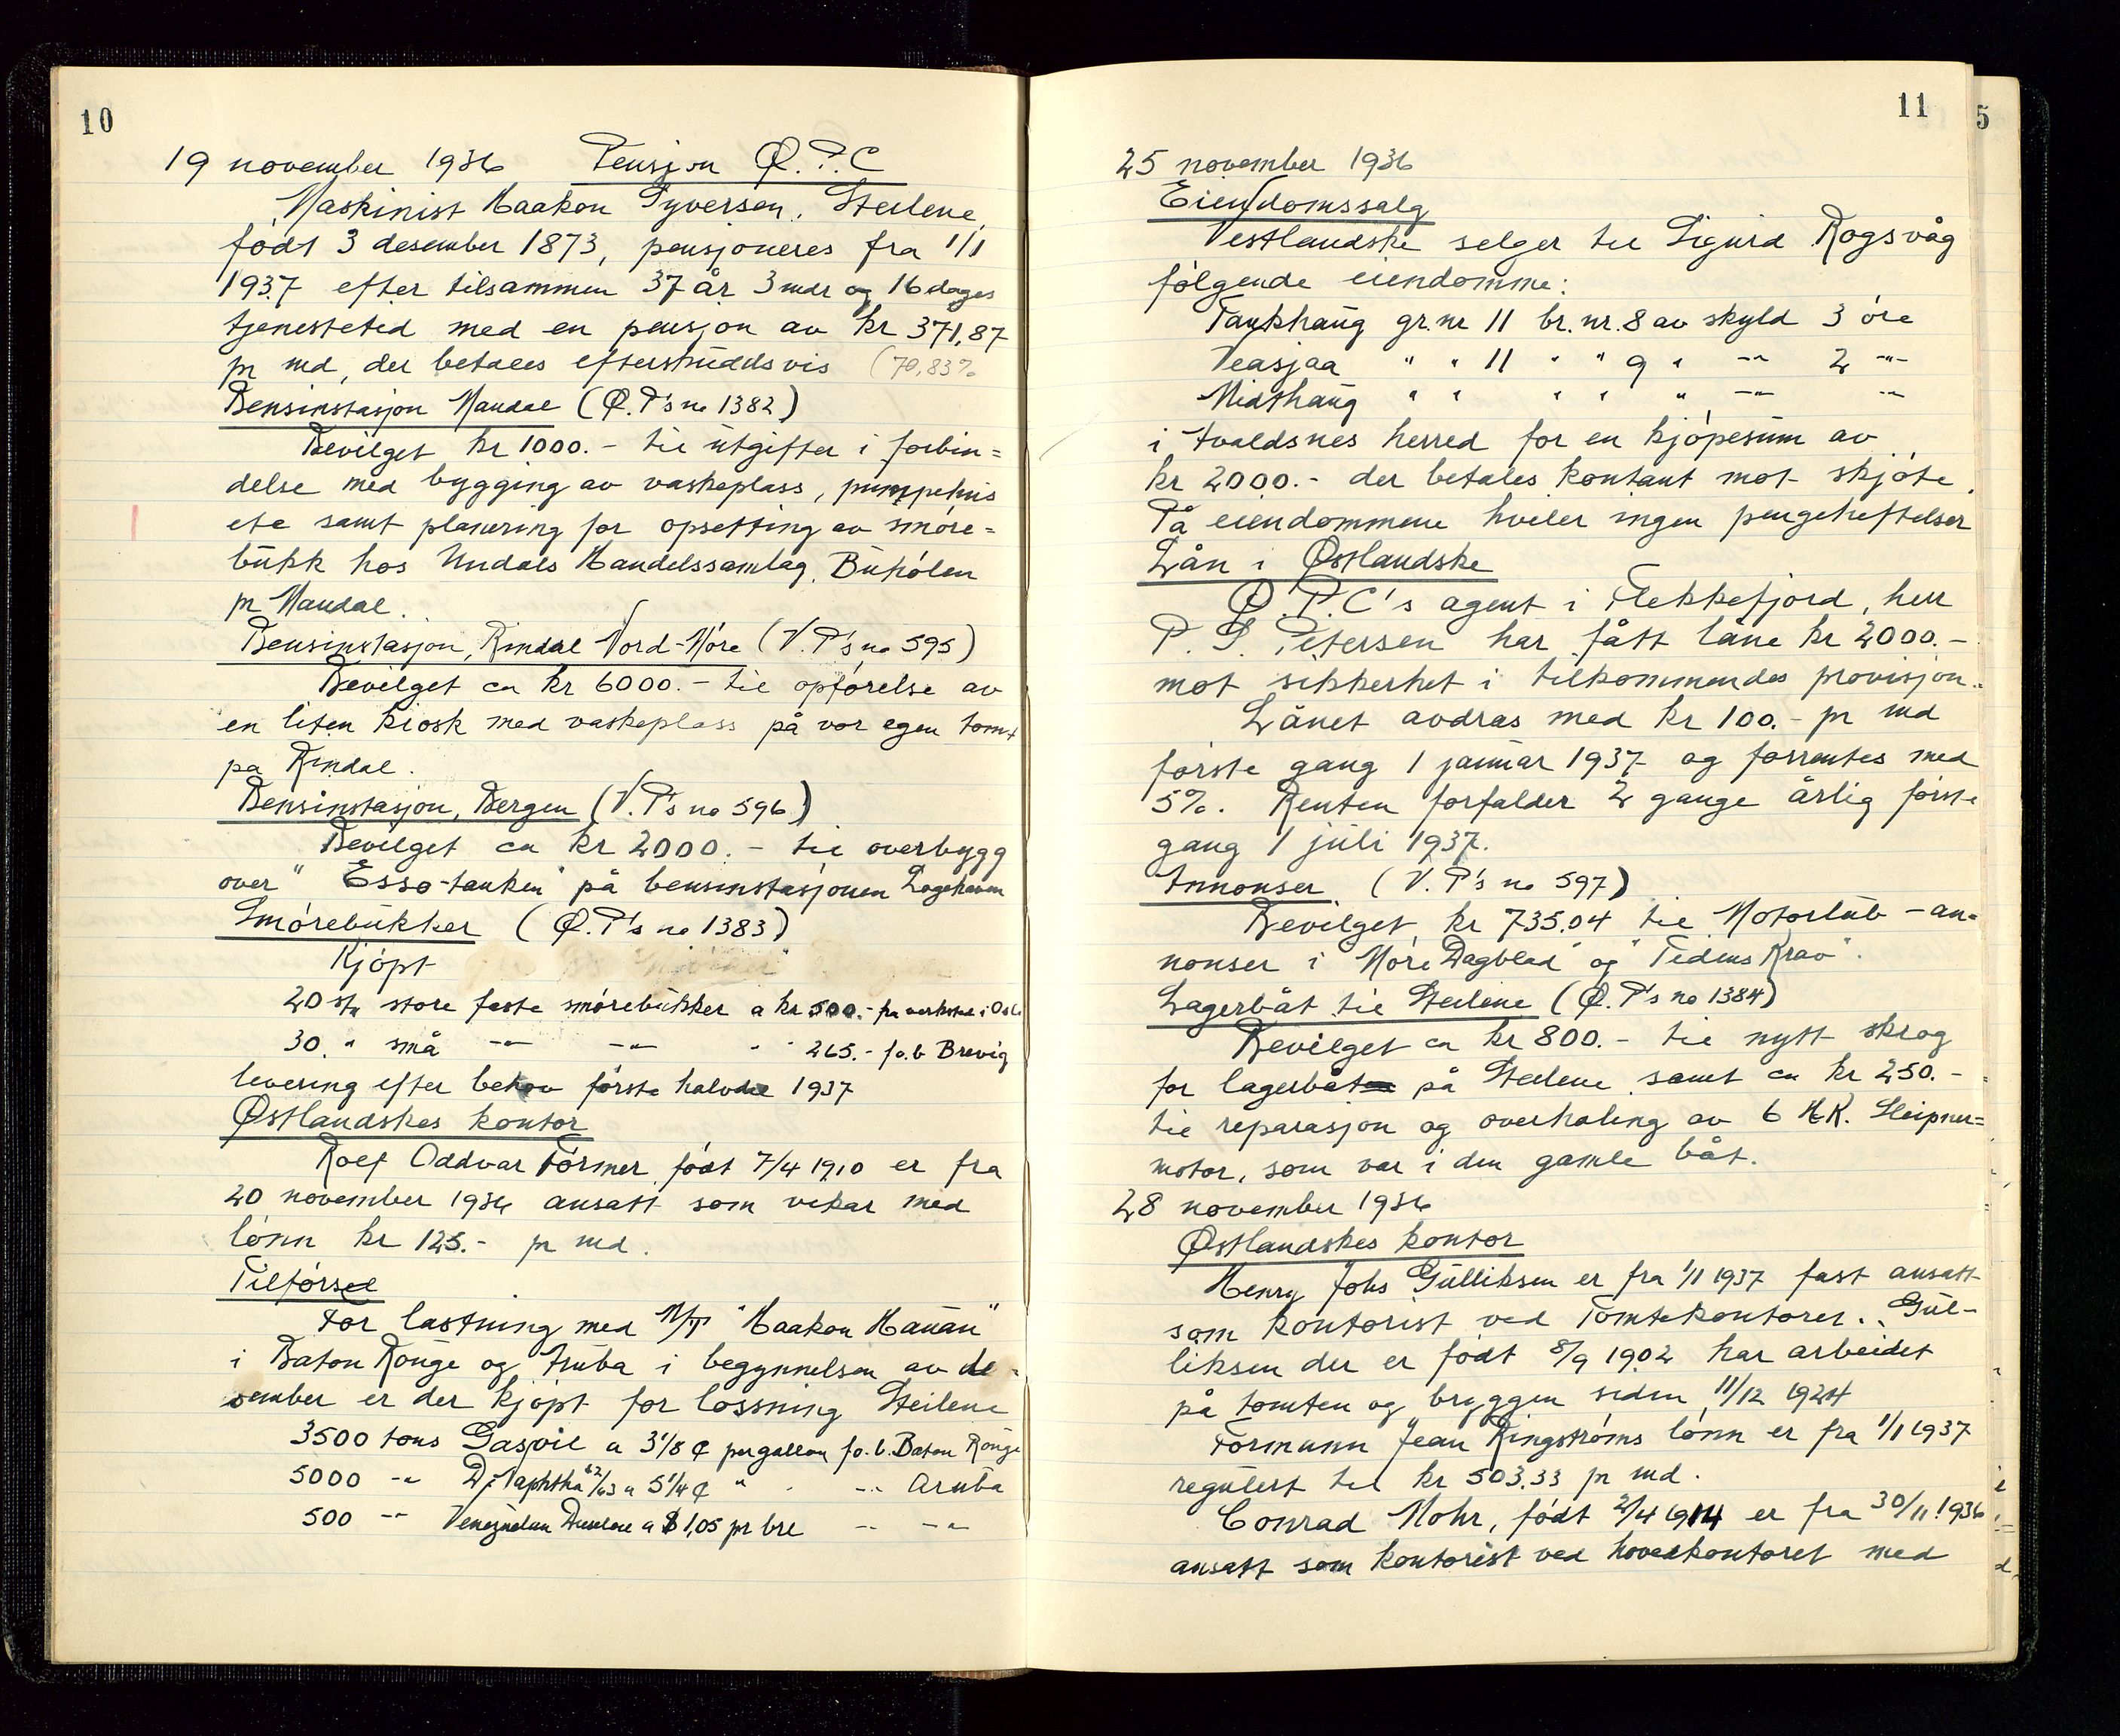 10
19 november 1936 Pensjon Ø.P.C
Maskinist Haakon Syversen, Steilene,
født 3 desember 1873, pensjoneres fra 1/1
1937 efter tilsammen 37 år 3 mdr og 16 dages
tjenestetid med en pensjon av kr 371,87
pr md, der betales efterskuddsvis (70,83%
Bensinstasjon Mandal (Ø.P's no 1382)
Bevilget kr 1000.- til utgifter i forbin=
delse med bygging av vaskeplass, pumpehus
etc samt planering for opsetting av smøre=
bukk hos Undals Handelssamlag, Buhølen
pr Mandal.
Bensinstasjon, Rindal Nord-Møre (V.P's no 595)
Bevilget ca kr 6000.- til opførelse av
en liten kiosk med vaskeplass på vor egen tomt
pa Rindal.
Bensinstasjon, Bergen (V.P's no 596)
Bevilget ca kr 2000.- til overbygg
over "Esso-tanken" på bensinstasjonen Logehaven
Smørebukker (Ø.P's no 1383)
Kjøpt
20 stk store faste smørebukker a kr 500.- fra verksted i Oslo
30 " små -"- -"- " " 265.- fo.b Brevig
levering efter behov første halvdel 1937
Østlandskes kontor
Rolf Oddvar Tørmer, født 7/4 1910 er fra
20 november 1936 ansatt som vikar med
lønn kr 125.- pr md.
Tilførsel
For lastning med M/T "Haakon Hauan"
i Baton Rouge og Aruba i begynnelsen av de=
sember er der kjøpt for lossning Steilene
3500 tons Gasoil a 3 1/8 ¢ per gallon fo.b. Baton Rouge
5000 -"- D. Naphtha 62/63 a 5 1/4 ¢ " " -"- Aruba
500 -"- Venezuelan Dieselene a $ 1,05 pr brl -"- -"-
11
5
25 november 1936
Eiendomssalg
Vestlandske selger til Sigurd Rogsvåg
følgende eiendomme:
Taukhaug gr. nr 11 br. nr. 8 av skyld 3 øre
Veasjaa " " 11 " " 9 " -"- 2 -"-
Midthaug " " " " " -"- -"-
i Avaldsnes herred for en kjøpesum av
kr 2000.- der betales kontant mot skjøte.
På eiendommene hviler ingen pengeheftelser
Lån i Østlandske
Ø.P.C's agent i Flekkefjord, herr
P. S. Petersen har fått låne kr 2000.-
mot sikkerhet i tilkommendes provisjon.
Lånet avdras med kr 100.- pr md
første gang 1 januar 1937 og forrentes med
5%. Renten forfalder 2 gange årlig første
gang 1 juli 1937.
Annonser (V.P's no 597)
Bevilget kr 735.04 til Motorlub-an=
nonser i "Møre Dagblad" og "Tidens Krav".
Lagerbåt til Steilene (Ø.P's no 1384)
Bevilget ca kr 800.- til nytt skrog
for lagerbåt på Steilene samt ca kr 250.-
til reparasjon og overhaling av 6 HK. Sleipner=
motor, som var i den gamle båt.
28 november 1936
Østlandskes kontor
Henry Johs Gulliksen er fra 1/1 1937 fast ansatt
som kontorist ved Tomtekontoret. Gul-
liksen der er født 8/9 1902 har arbeidet
på tomten og bryggen siden 11/12 1924
Formann Jean Ringstrøms lønn er fra 1/1 1937
regulert til kr 503.33 pr md.
Conrad Mohr, født 2/4 1914 er fra 30/11 1936
ansatt som kontorist ved hovedkontoret med